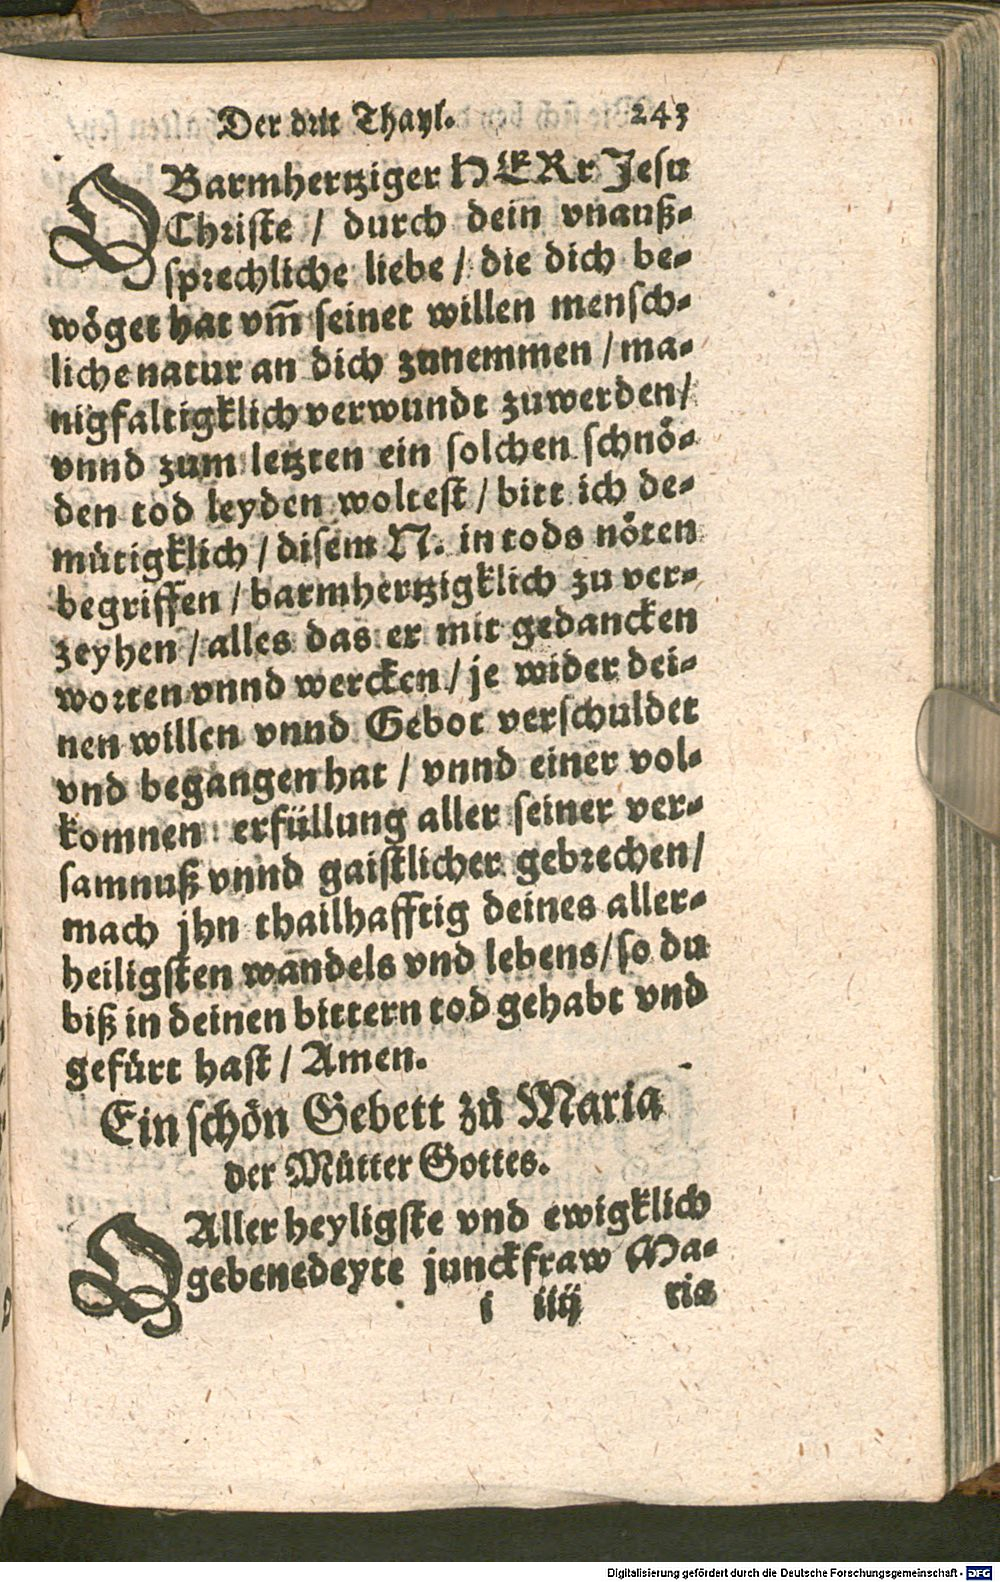 Der drit Thayl. 243
O Barmhertziger HERr Jesu
Christe / durch dein vnauß-
sprechliche liebe / die dich be-
wöget hat vm̃ seinet willen mensch-
liche natur an dich zunemmen / ma-
nigfaltigklich verwundt zuwerden /
vnnd zum letzten ein solchen schnö-
den tod leyden woltest / bitt ich de-
mütigklich / disem N. in tods nöten
begriffen / barmhertzigklich zu ver-
zeyhen / alles das er mit gedancken
worten vnnd wercken / je wider dei-
nen willen vnnd Gebot verschuldet
vnd begangen hat / vnnd einer vol-
komnen erfüllung aller seiner ver-
samnuß vnnd gaistlicher gebrechen /
mach jhn thailhafftig deines aller-
heiligsten wandels vnd lebens / so du
biß in deinen bittern tod gehabt vnd
gefürt hast / Amen.
Ein schön Gebett zů Maria
der Můtter Gottes.
O Aller heyligste vnd ewigklich
gebenedeyte junckfraw Ma-
i iiij ria
Digitalisierung gefördert durch die Deutsche Forschungsgemeinschaft - DFG